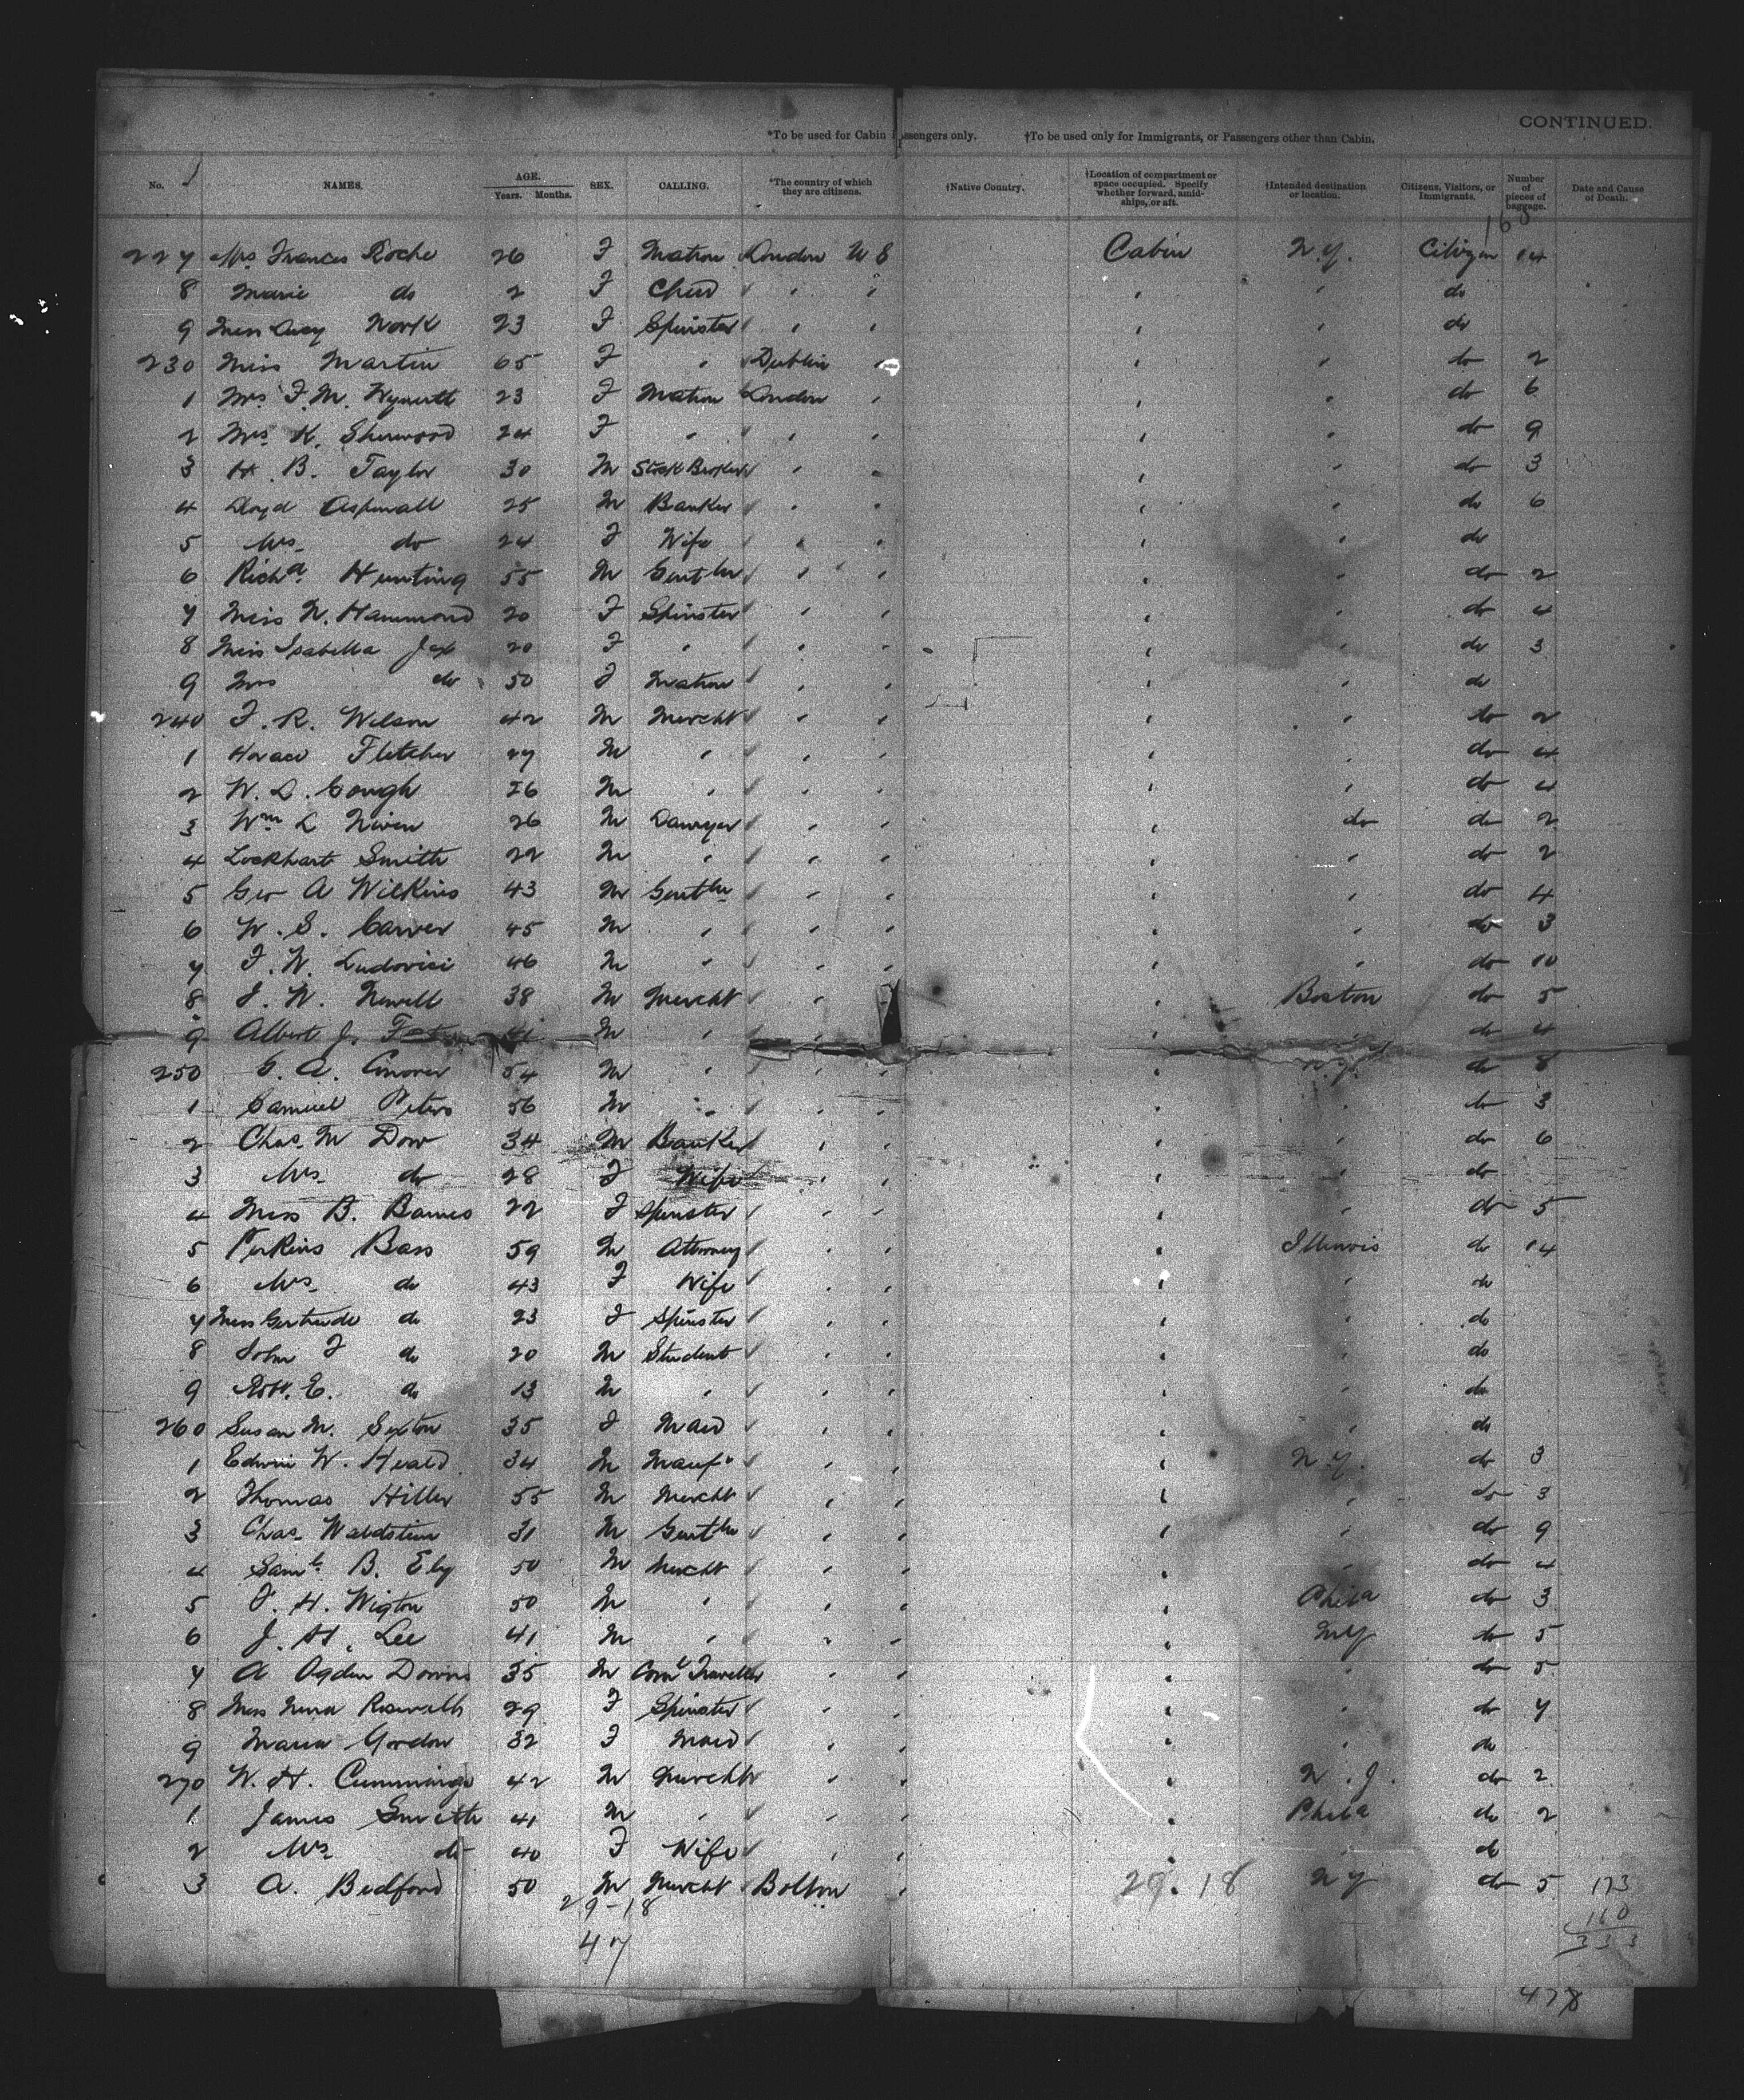 CONTINUED.
*To be used for Cabin Passengers only. †To be used only for Immigrants, or Passengers other than Cabin.
No. NAMES. AGE. Years. Months. SEX. CALLING. *The country of which they are citizens. †Native Country. †Location of compartment or space occupied. Specify whether forward, amidships, or aft. †Intended destination or location. Citizens, Visitors, or Immigrants. Number of pieces of baggage. Date and Cause of Death.
160
227 Mrs Frances Roche 26 F Matron London U S Cabin N.Y. Citizen 14
8 Marie do 2 F Child " " " " do
9 Miss Lucy Work 23 F Spinster " " " " do
230 Miss Martin 65 F " Dublin " " " do 2
1 Mrs F. M. 23 F Matron London " " " do 6
2 Mrs K. Sherwood 24 F " " " " " do 9
3 H. B. Taylor 30 M Stock Broker " " " " do 3
4 Lloyd Aspinwall 25 M Banker " " " " do 6
5 Mrs do 24 F Wife " " " " do
6 Richd Hunting 55 M Gentln " " " " do 2
7 Miss N. Hammond 20 F Spinster " " " " do 4
8 Miss Isabella 20 F " " " " " do 3
9 Mrs do 50 F Matron " " " " do
240 F. R. Wilson 42 M Mercht " " " " do 2
1 Horace Fletcher 27 M " " " " " do 4
2 W. L. Gough 26 M " " " " " do 4
3 Wm L Niven 26 M Lawyer " " " do do 2
4 Lockhart Smith 22 M " " " " " do 2
5 Geo A Wilkins 43 M Gentln " " " " do 4
6 W. S. Carver 45 M " " " " " do 3
7 F. W. Ludovici 46 M " " " " " do 10
8 J. W. Newell 38 M Mercht " " " Boston do 5
9 Albert J. 41 M " " " " " do 4
250 G. A. Conover 54 M " " " " N.Y. do 8
1 Samuel Peters 56 M " " " " " do 3
2 Chas. M Dow 34 M Banker " " " " do 6
3 Mrs do 28 F Wife " " " " do
4 Miss B. Barnes 22 F Spinster " " " " do 5
5 Perkins Bass 59 M Attorney " " " Illinois do 14
6 Mrs do 43 F Wife " " " " do
7 Miss Gertrude do 23 F Spinster " " " " do
8 John F do 20 M Student " " " " do
9 Robt. E. do 13 M " " " " " do
260 Susan M. Sexton 35 F Maid " " " " do
1 Edwin W. Heald 34 M Manufr " " " N.Y. do 3
2 Thomas Hiller 55 M Mercht " " " " do 3
3 Chas. Waldstein 31 M Gentln " " " " do 9
4 Saml. B. Eby 50 M Mercht " " " " do 4
5 F. H. Wigton 50 M " " " " Phila do 3
6 J. H. Lee 41 M " " " " NY do 5
7 A Ogden Downs 35 M Coml Traveller " " " " do 5
8 Miss 29 F Spinster " " " " do 7
9 Maria Gordon 32 F Maid " " " " do
270 W. H. Cummings 42 M Mercht " " " N. J. do 2
1 James Smith 41 M " " " " Phila do 2
2 Mrs do 40 F Wife " " " " do
3 A. Bedford 50 M Mercht Bolton " 29.18 NY do 5 173
29-18 160
47 333
478